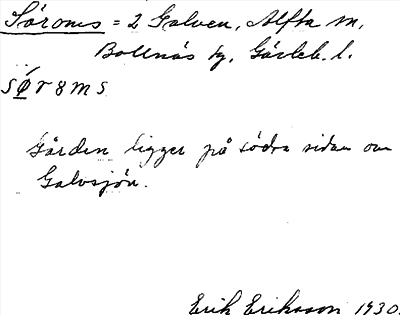 Söroms = 2 Galven, Alfta sn,
Bollnäs tg, Gävleb. l.
sǿr8ms
Gården ligger på södra sidan om
Galvsjön.
Erik Eriksson 1930.